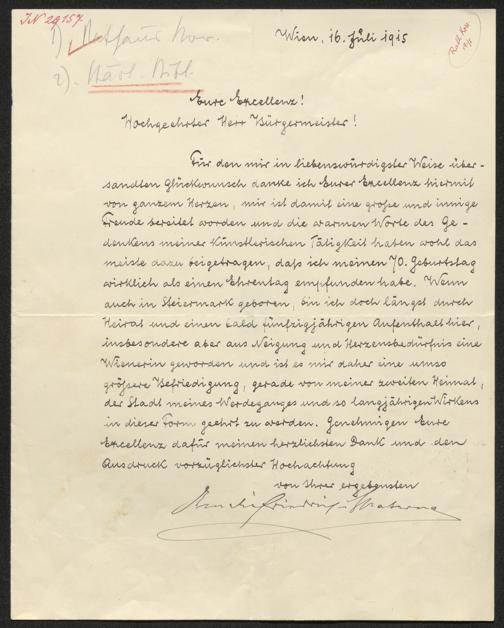 IN 29157
1) Rathaus Korr.
2). Städt. Bibl.
Wien, 16. Juli 1915
Eure Excellenz!
Hochgeehrter Herr Bürgermeister!
Für den mir in liebenswürdigster Weise über-
sandten Glückwunsch danke ich Eurer Excellenz hiermit
von ganzem Herzen, mir ist damit eine große und innige
Freude bereitet worden und die warmen Worte des Ge-
denkens meiner künstlerischen Tätigkeit haben wohl das
meiste dazu beigetragen, daß ich meinen 70. Geburtstag
wirklich als einen Ehrentag empfunden habe. Wenn
auch in Steiermark geboren, bin ich doch längst durch
Heirat und einen bald fünfzigjährigen Aufenthalt hier,
insbesondere aber aus Neigung und Herzensbedürfnis eine
Wienerin geworden und ist es mir daher eine umso
größere Befriedigung, gerade von meiner zweiten Heimat,
der Stadt meines Werdeganges und so langjährigen Wirkens
in dieser Form geehrt zu werden. Genehmigen Eure
Excellenz dafür meinen herzlichsten Dank und den
Ausdruck vorzüglichster Hochachtung
von Ihrer ergebensten
Amalie Friedrich-Materna